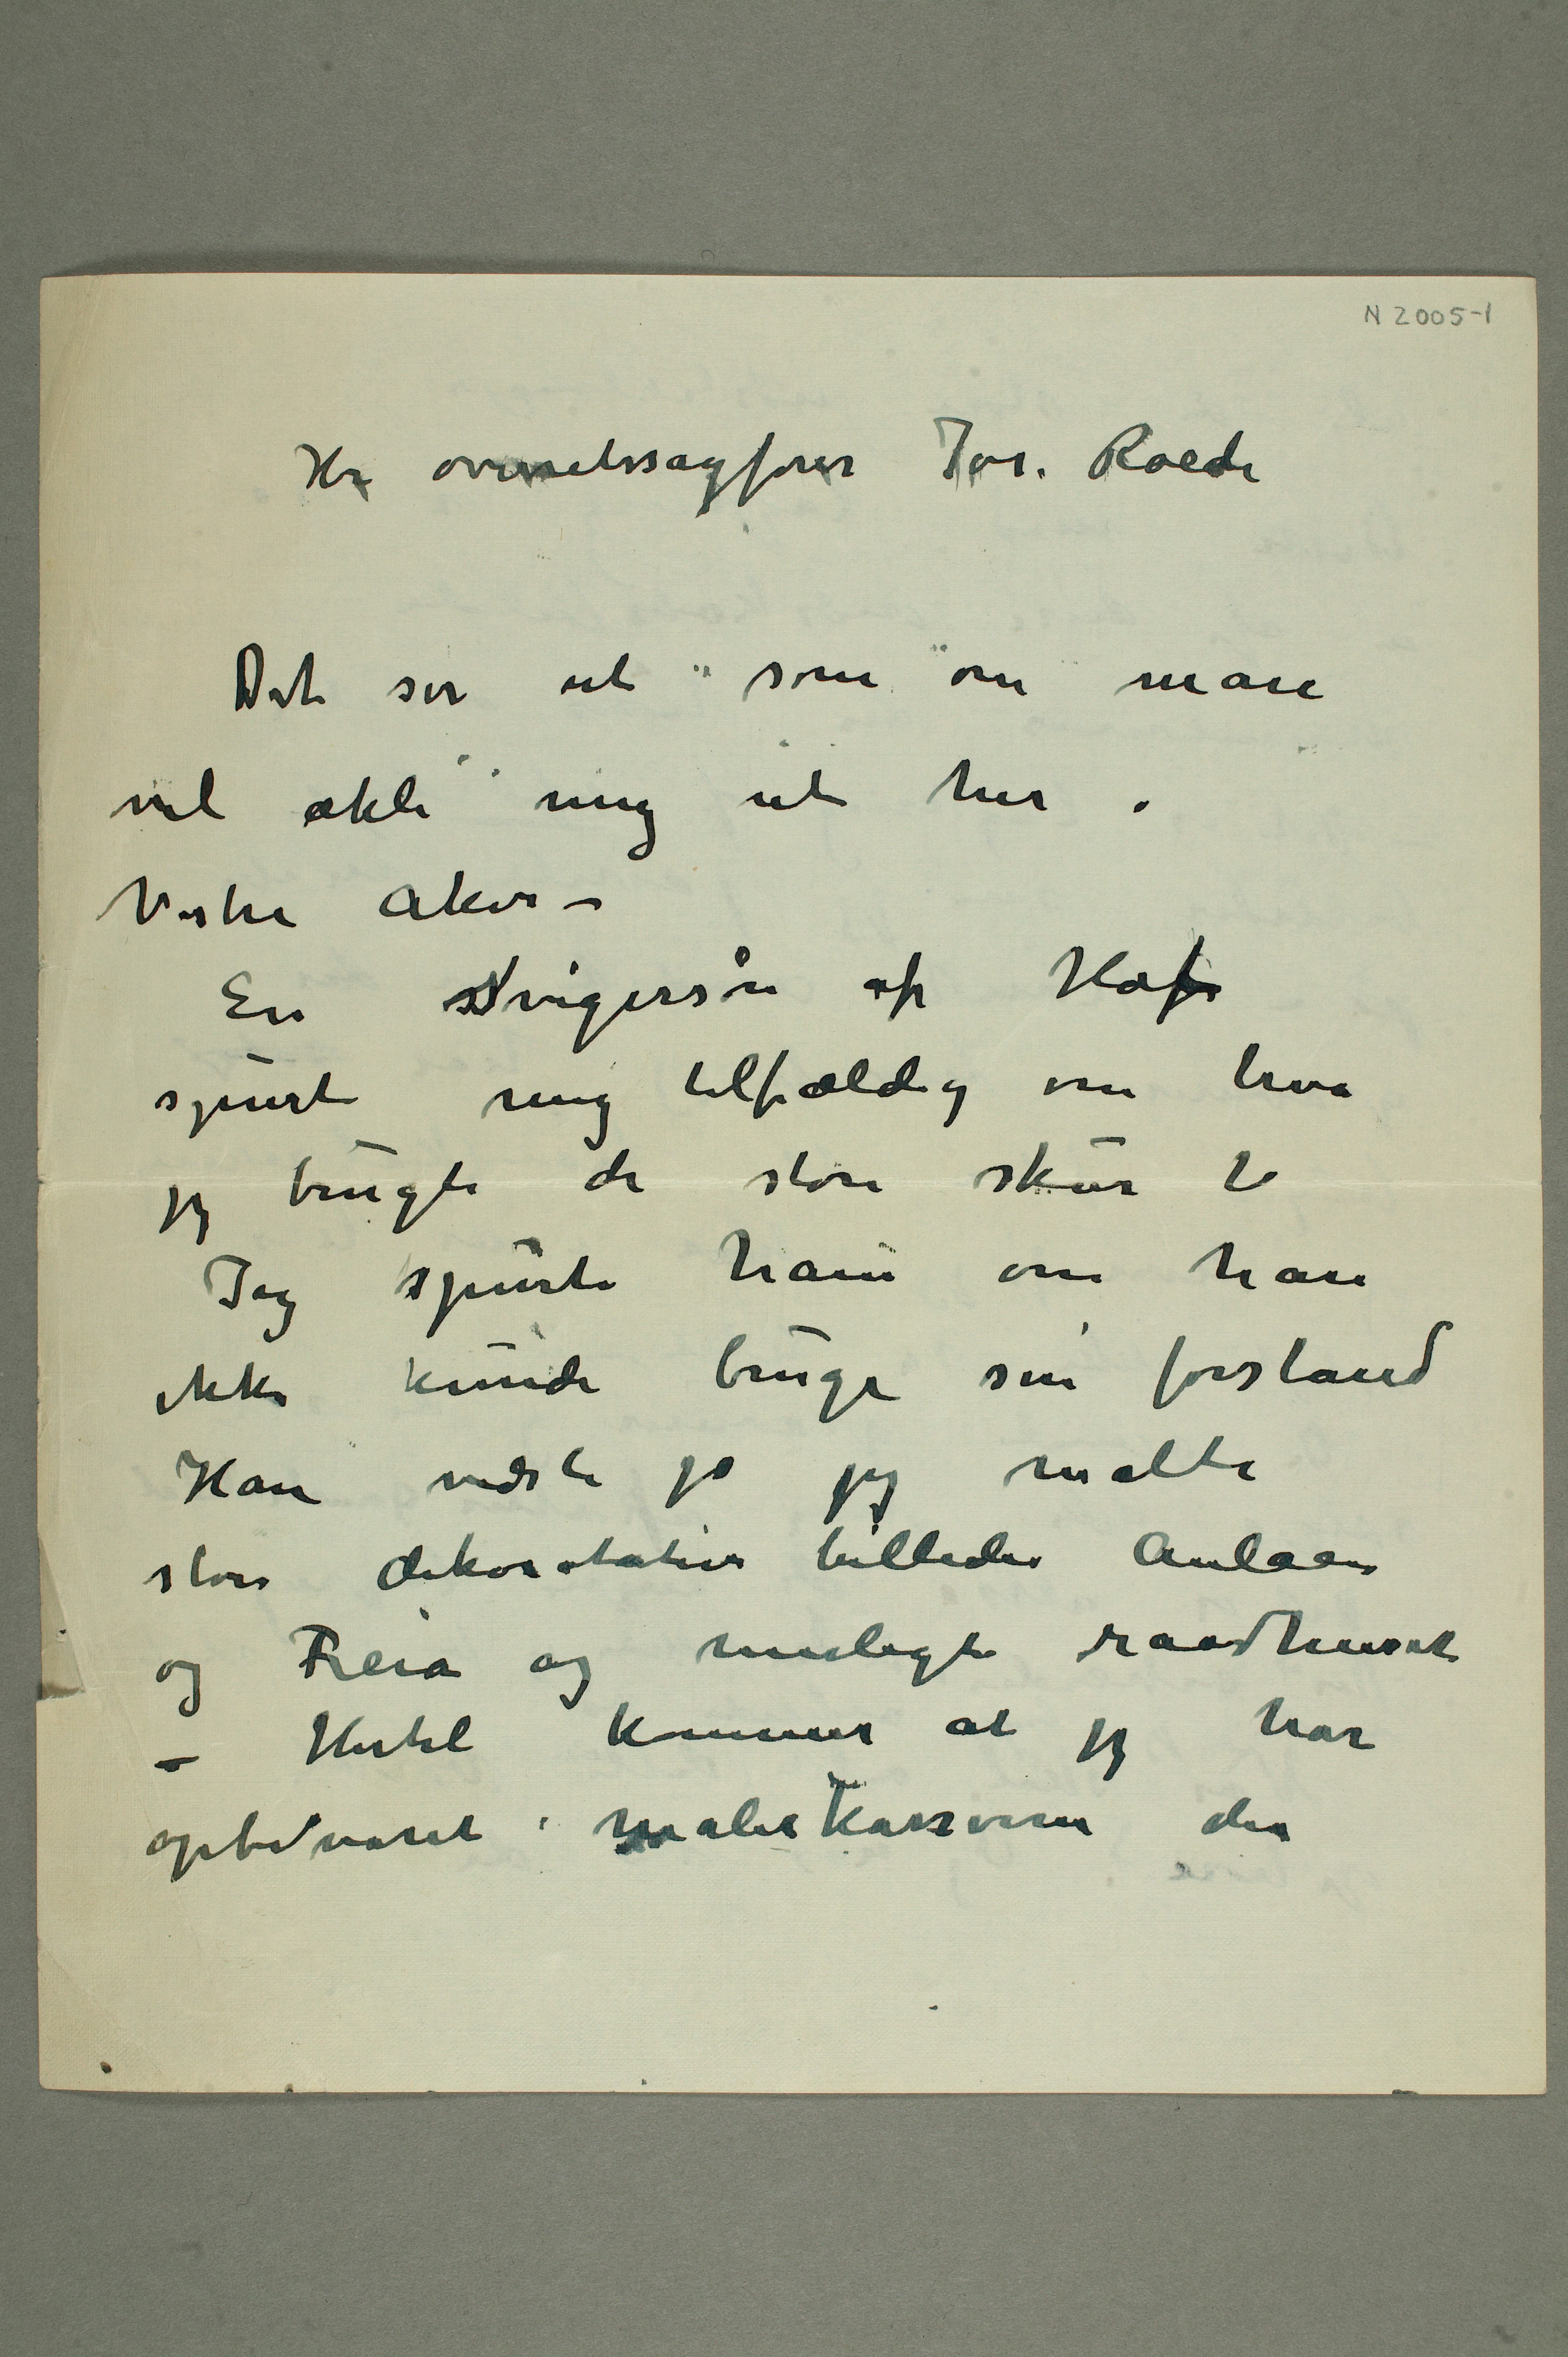 N 2005-1
Hr overretssagfører Joh. Roede
Det ser ut som om man
vil ækle mig ut her .
Vestre Aker –
En Svigersøn af Hafr
spurte mig tilfældig om hva
jeg brugte de store skur til
Jeg spurte ham om han
ikke kunde bruge sin forstand
Han vidste jo jeg malte
store dekorative billeder Aulaen
og Freia og muligt raadhuset
– Hertil kommer at jeg har
opbevaret i malerkasserne den